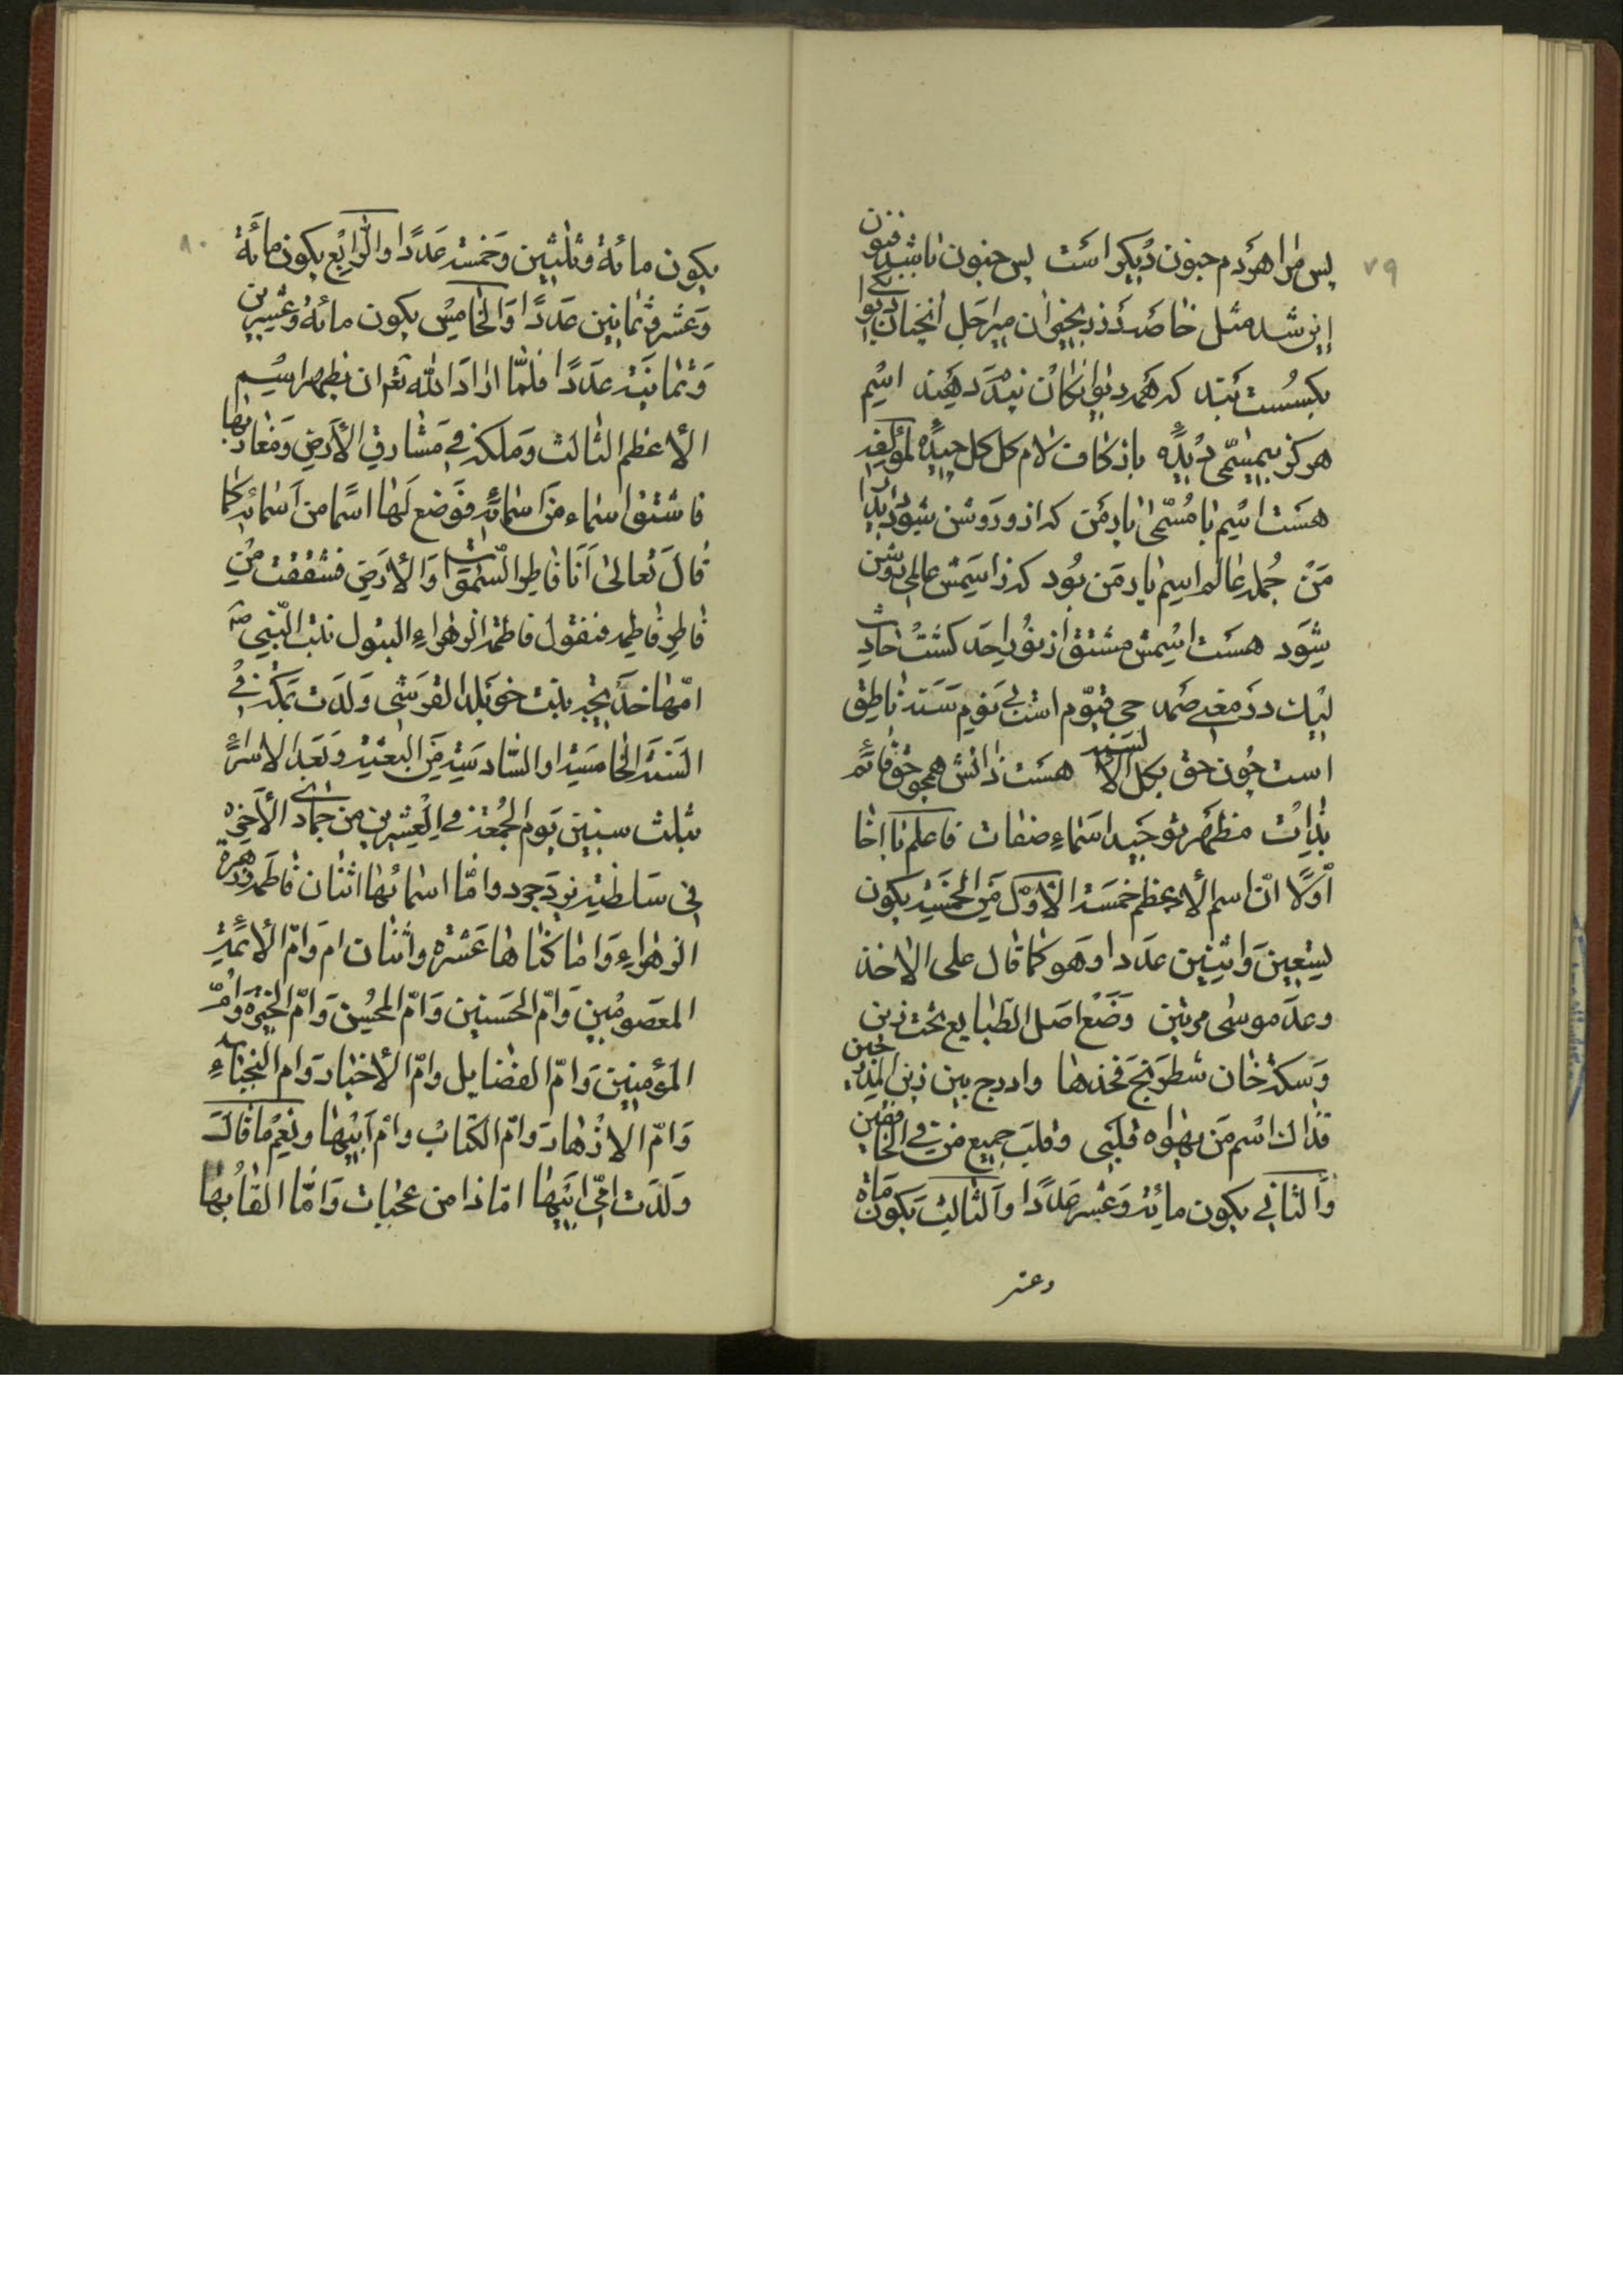 ٧٩
پس مرا هردم جنون دیکر است پس جنون باشد فنون
این شد مثل خاصه در زنجیر ان میر اجل انچنان دیوانکی
بکسست بند که همه دیوانکان پندم دهند اسم
هرکز بیمسمی دیدهٔ یا ز کاف و لام کل کل چیدهٔ لمؤلفه
هست اسم با مسمی یار من که از و روشن شود
من جمله عالم اسم یار من بود کز اسمش عالمی روشن
شود هست اسمش مشتق از نور احد کشت حادث
لیک در معنی صمد حی قیوم است بی نوم سنه ناطق
است چون حق بکل الالسنه هست ذاتش همچو حق قائم
بذات مظهر توحید اسماء صفات فاعلم یا اخا
اولا ان اسم الاعظم خمسة الاول من الخمسة یکون
تسعین و اثنین عددا و هو کما قال علی الاخذ
وعد موسی مرتین وضع اصل الطبایع تحت ذین
وسکة خان شطرنج فخذها وادرج بین ذین المدرجین
فذاك اسم من یهواه قلبی وقلب جمیع من فی الخافقین
والثانی یکون مائة وعشر عددا والثالث یکون مائة
وعشر
٨٠
یکون مائة وثلثین وخمسة عددا والرابع یکون مائة
وعشر وثمانین عددا والخامس یکون مائة وعشرین
وثمانیة عددا فلما اراد الله تعم ان یظهر اسم
الاعظم الثالث وملکه فی مشارق الأرض ومغاربها
فاشتق اسماء من اسمائه فوضع لها اسما من اسمائه کما
قال تعالی انا فاطر السموات والأرض فشققت من
فاطر فاطمه فنقول فاطمة الزهراء البتول بنت النبی ص
امها خدیجه بنت خویلد القرشی ولدت بمکة فی
السنة الخامسة او السادسة من البعثة و بعد الاسراء
بثلث سنین یوم الجمعة فی العشرین من جمادی الأخیره
فی سلطنة یزدجرد واما اسمائها اثنان فاطمه و زهره
الزهراء واما کناها عشره واثنان ام وام الأئمة
المعصومین وام الحسنین وام المحسن وام الخیره وام
المؤمنین وام الفضایل وام الأخیار وام النجباء
وام الازهار وام الکتاب وام ابیها ونعم ما قال
ولدت امی ابیها ان ذا من عجبات واما القابها